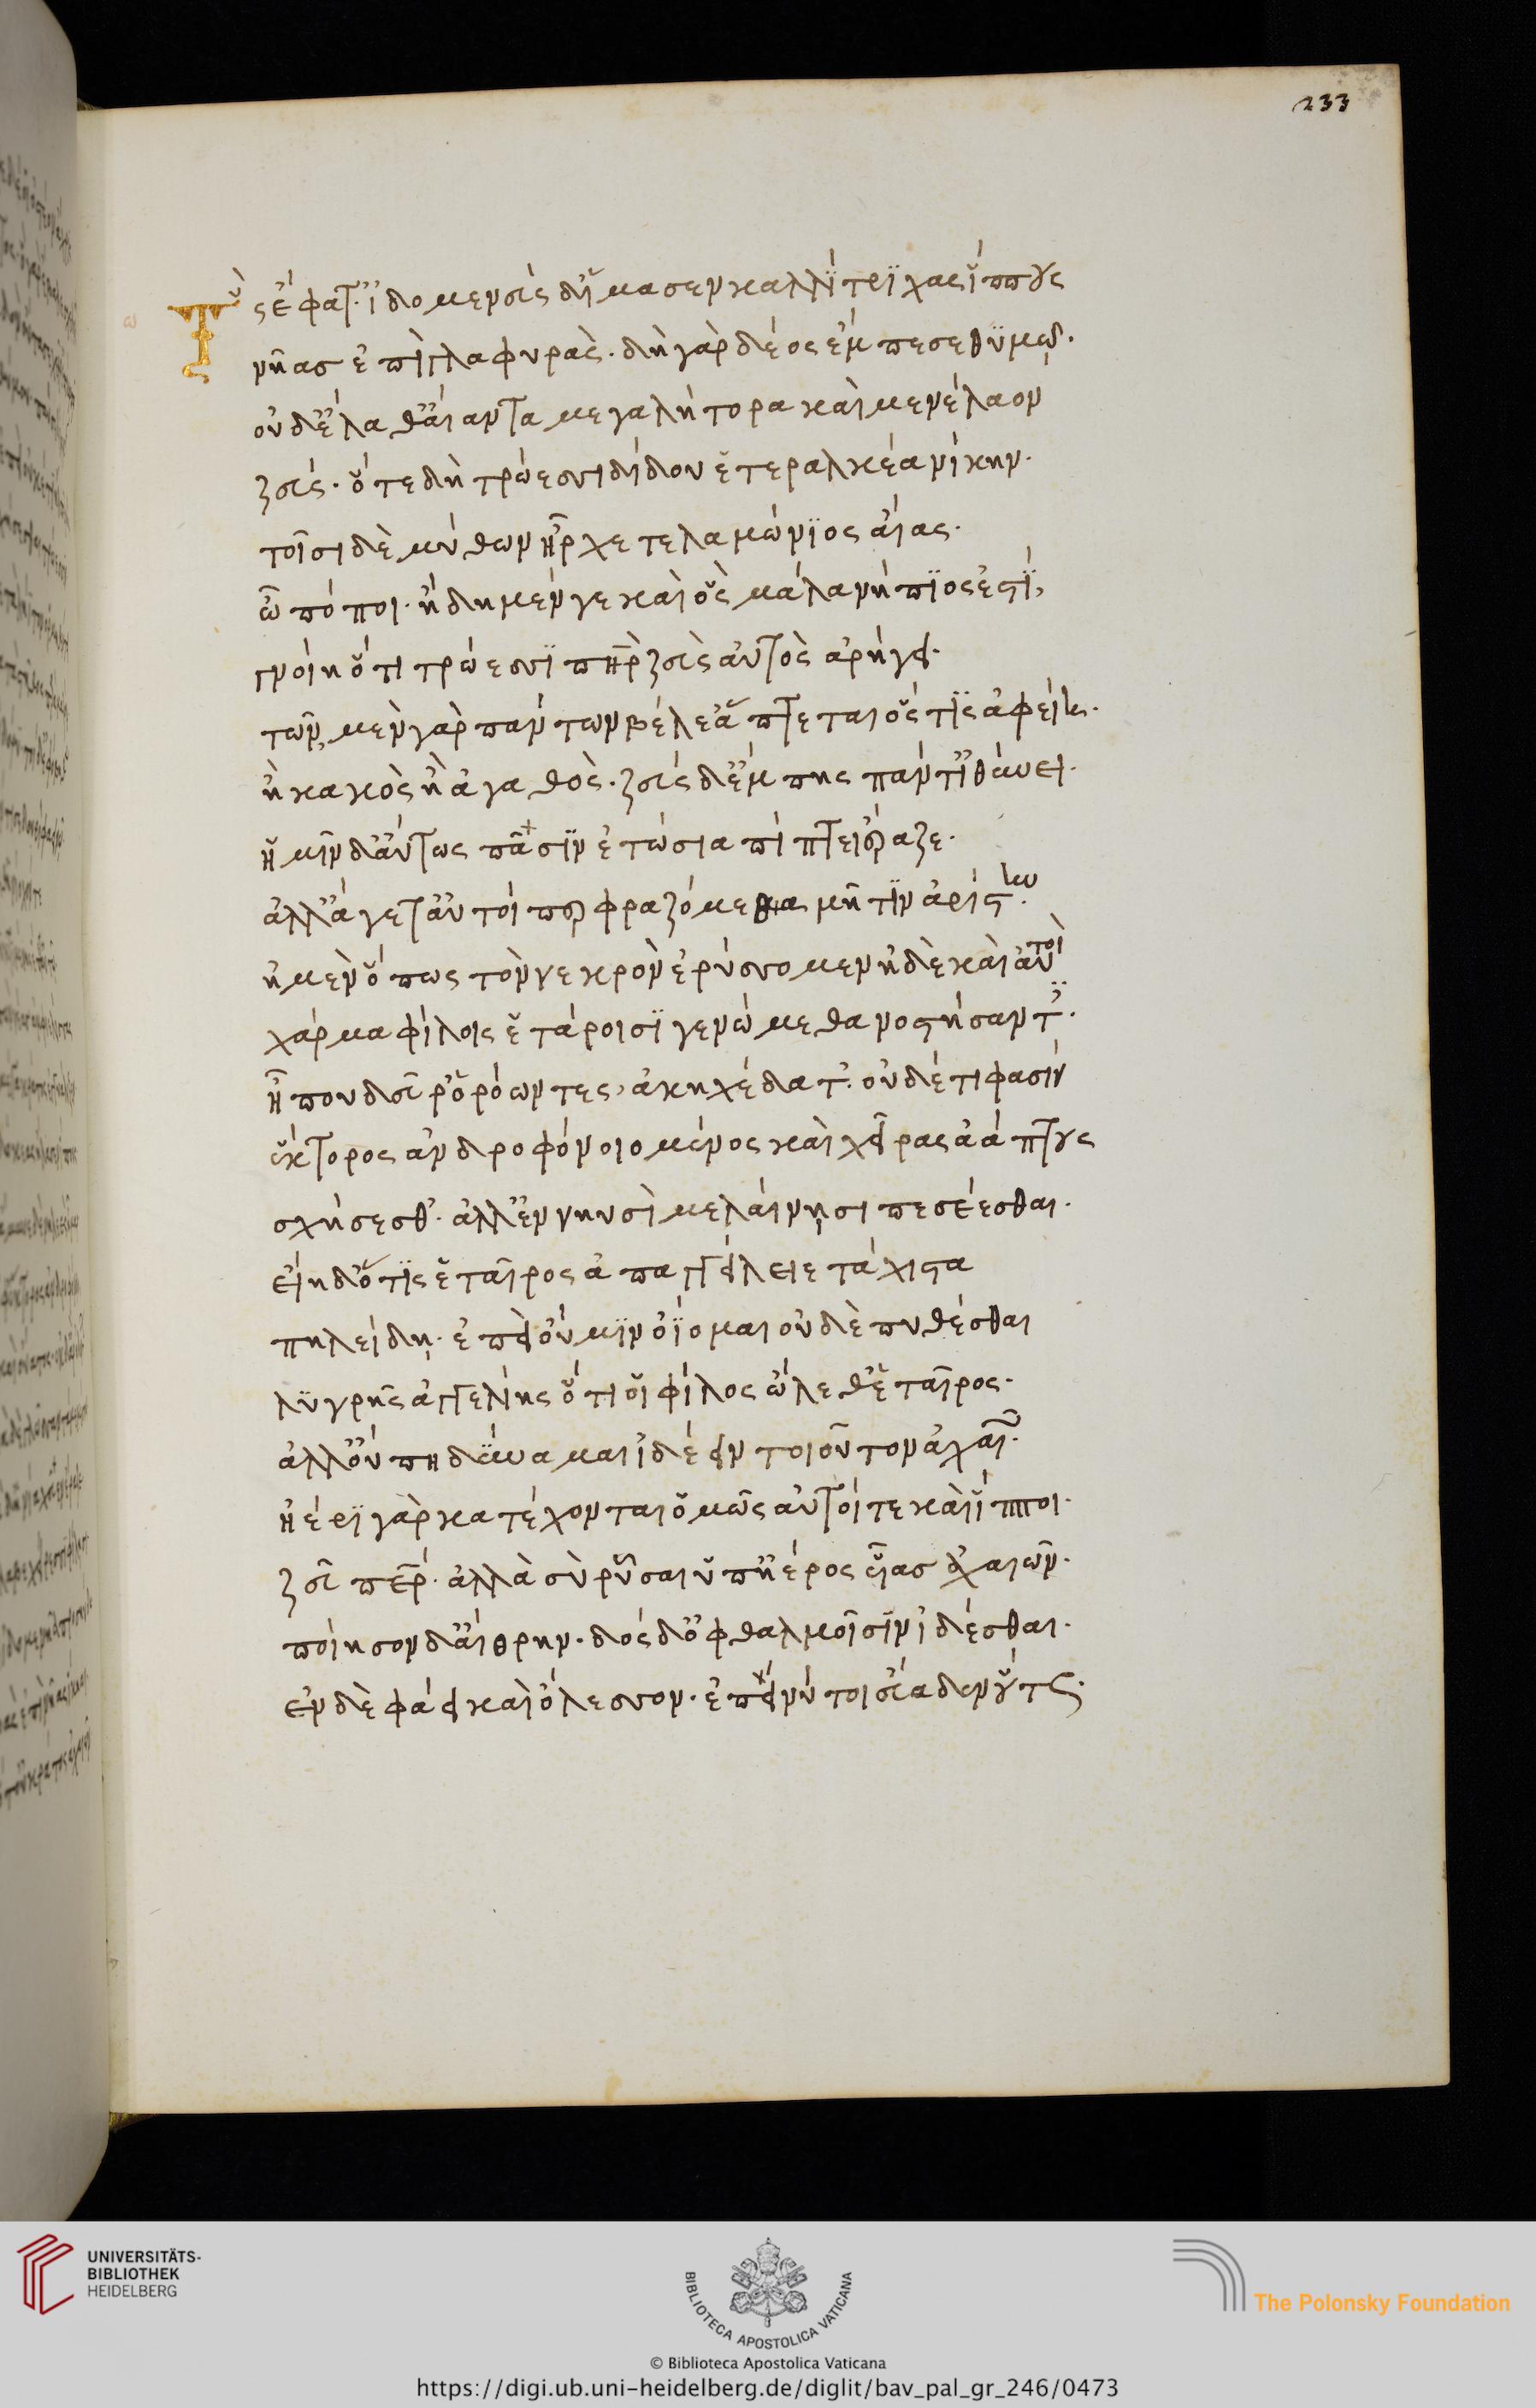 233
Τὣς ἔφατ'· ἰδομενεὺς δ' ἵμασεν καλλίτριχας ἵππους
νῆας ἐπὶ γλαφυράς· δὴ γὰρ δέος ἔμπεσε θυμῷ.
οὐδ' ἔλαθ' αἴαντα μεγαλήτορα καὶ μενέλαον
ζεύς· ὅτε δὴ τρώεσσι δίδου ἑτεραλκέα νίκην.
τοῖσι δὲ μύθων ἦρχε τελαμώνιος αἴας.
ὦ πόποι· ἤδη μέν γε καὶ ὃς μάλα νήπιός ἐστι,
γνοίη ὅτι τρώεσσι πατὴρ ζεὺς αὐτὸς ἀρήγει.
τῶν μὲν γὰρ πάντων βέλε' ἅπτεται ὅς τις ἀφείη.
ἢ κακὸς ἢ ἀγαθός· ζεὺς δ' ἔμπης πάντ' ἰθύνει.
ἡμῖν δ' αὔτως πᾶσιν ἐτώσια πίπτει ἔραζε.
ἀλλ' ἄγετ' αὐτοί περ φραζόμεθα μῆτιν ἀρίστην.
ἠμὲν ὅπως τὸν νεκρὸν ἐρύσσομεν ἠδὲ καὶ αὐτοὶ
χάρμα φίλοις ἑτάροισι γενώμεθα νοστήσαντες.
ἦ που δεῦρ' ὁρόωντες, ἀκηχέδατ'· οὐδέ τι φασίν
ἕκτορος ἀνδροφόνοιο μένος καὶ χεῖρας ἀάπτους
σχήσεσθ'· ἀλλ' ἐν νηυσὶ μελαίνῃσι πεσέεσθαι.
εἴη δ' ὅτις ἑταῖρος ἀπαγγείλειε τάχιστα
πηλείδῃ· ἐπεὶ οὔ μιν ὀΐομαι οὐδὲ πυθέσθαι
λυγρῆς ἀγγελίης ὅτι οἱ φίλος ὤλεθ' ἑταῖρος.
ἀλλ' οὔ πῃ δύναμαι ἰδέειν τοιοῦτον ἀχαιῶν.
ἠέρι γὰρ κατέχονται ὁμῶς αὐτοί τε καὶ ἵπποι.
ζεῦ πάτερ· ἀλλὰ σὺ ῥῦσαι ὑπ' ἠέρος υἷας ἀχαιῶν.
ποίησον δ' αἴθρην· δὸς δ' ὀφθαλμοῖσιν ἰδέσθαι.
ἐν δὲ φάει καὶ ὄλεσσον· ἐπεί νύ τοι εὔαδεν οὕτως.
UNIVERSITÄTS-
BIBLIOTHEK
HEIDELBERG
BIBLIOTECA APOSTOLICA VATICANA
The Polonsky Foundation
© Biblioteca Apostolica Vaticana
https://digi.ub.uni-heidelberg.de/diglit/bav_pal_gr_246/0473